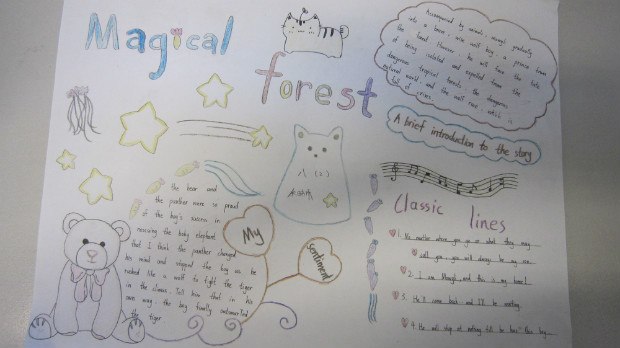 Magical
forest
Accompanied by animals, mowgli gradually
into a brave, wise wolf boy, a prince from
the land. However, he will face the fate
of being isolated and expelled from the
dangerous tropical forests, the dangerous
natural world and the wolf race which is
full of crises.
A brief introduction to the story
八(2)
the bear and
the panther were so proud
of the boy's success in
rescuing the baby elephant
that I think the panther changed
his mind and stopped the boy as he
rushed like a wolf to fight the tiger
in the climax. Tell him that in his
own way. the boy finally outsmarted
the tiger
My
sentiment
Classic lines
1. No matter where you go or what they may
call you, you will always be my son.
2. I am Mowgli and this is my home!
3. He'll come back and I'll be waiting.
4. He will stop at nothing till he has this boy.